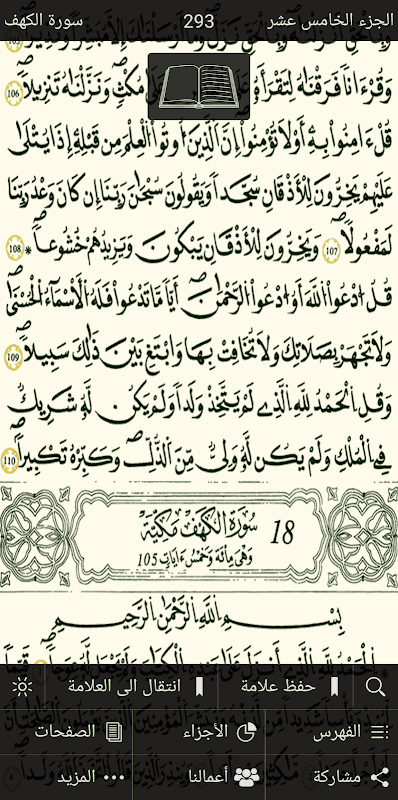 الجزء الخامس عشر 293 سورة الكهف
وَقُرْءَاناً فَرَقْنَٰهُ لِتَقْرَأَهُۥ عَلَى مُكْثٍ وَنَزَّلْنَٰهُ تَنزِيلاً 106
قُلْ ءَامِنُواْ بِهِۦٓ أَوْ لَا تُؤْمِنُوٓاْ إِنَّ ٱلَّذِينَ أُوتُواْ ٱلْعِلْمَ مِن قَبْلِهِۦٓ إِذَا يُتْلَىٰ
عَلَيْهِمْ يَخِرُّونَ لِلْأَذْقَانِ سُجَّداً وَيَقُولُونَ سُبْحَٰنَ رَبِّنَآ إِن كَانَ وَعْدُ رَبِّنَا
لَمَفْعُولاً 107 وَيَخِرُّونَ لِلْأَذْقَانِ يَبْكُونَ وَيَزِيدُهُمْ خُشُوعاً 108
قُلُ ٱدْعُواْ ٱللَّهَ أَوُ ٱدْعُواْ ٱلرَّحْمَٰنَ أَيّاً مَّا تَدْعُواْ فَلَهُ ٱلْأَسْمَآءُ ٱلْحُسْنَىٰ
وَلَا تَجْهَرْ بِصَلَاتِكَ وَلَا تُخَافِتْ بِهَا وَٱبْتَغِ بَيْنَ ذَٰلِكَ سَبِيلاً 109
وَقُلِ ٱلْحَمْدُ لِلَّهِ ٱلَّذِى لَمْ يَتَّخِذْ وَلَداً وَلَمْ يَكُن لَّهُۥ شَرِيكٌ
فِى ٱلْمُلْكِ وَلَمْ يَكُن لَّهُۥ وَلِىٌّ مِّنَ ٱلذُّلِّ وَكَبِّرْهُ تَكْبِيراً 110
18 سُورَةُ ٱلْكَهْفِ مَكِّيَّة
وَهْيَ مِائَة وَخَمْسُ ءَايَات 105
بِسْمِ ٱللَّهِ ٱلرَّحْمَٰنِ ٱلرَّحِيمِ
حفظ علامة انتقال الى العلامة
الفهرس الأجزاء الصفحات
مشاركة أعمالنا المزيد